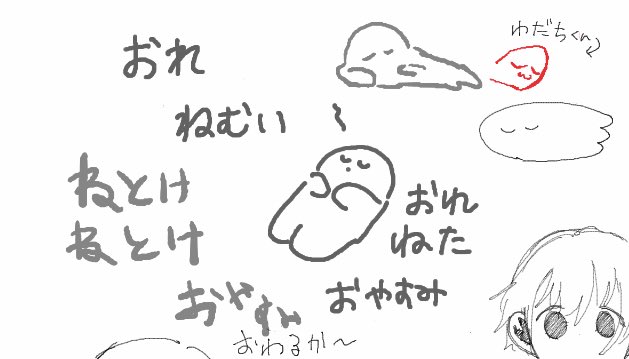 わだちくん
おれ
ねむい 〜
ねとけ
おれ
ねとけ
ねた
おやすみ
おやすみ
おわるか〜